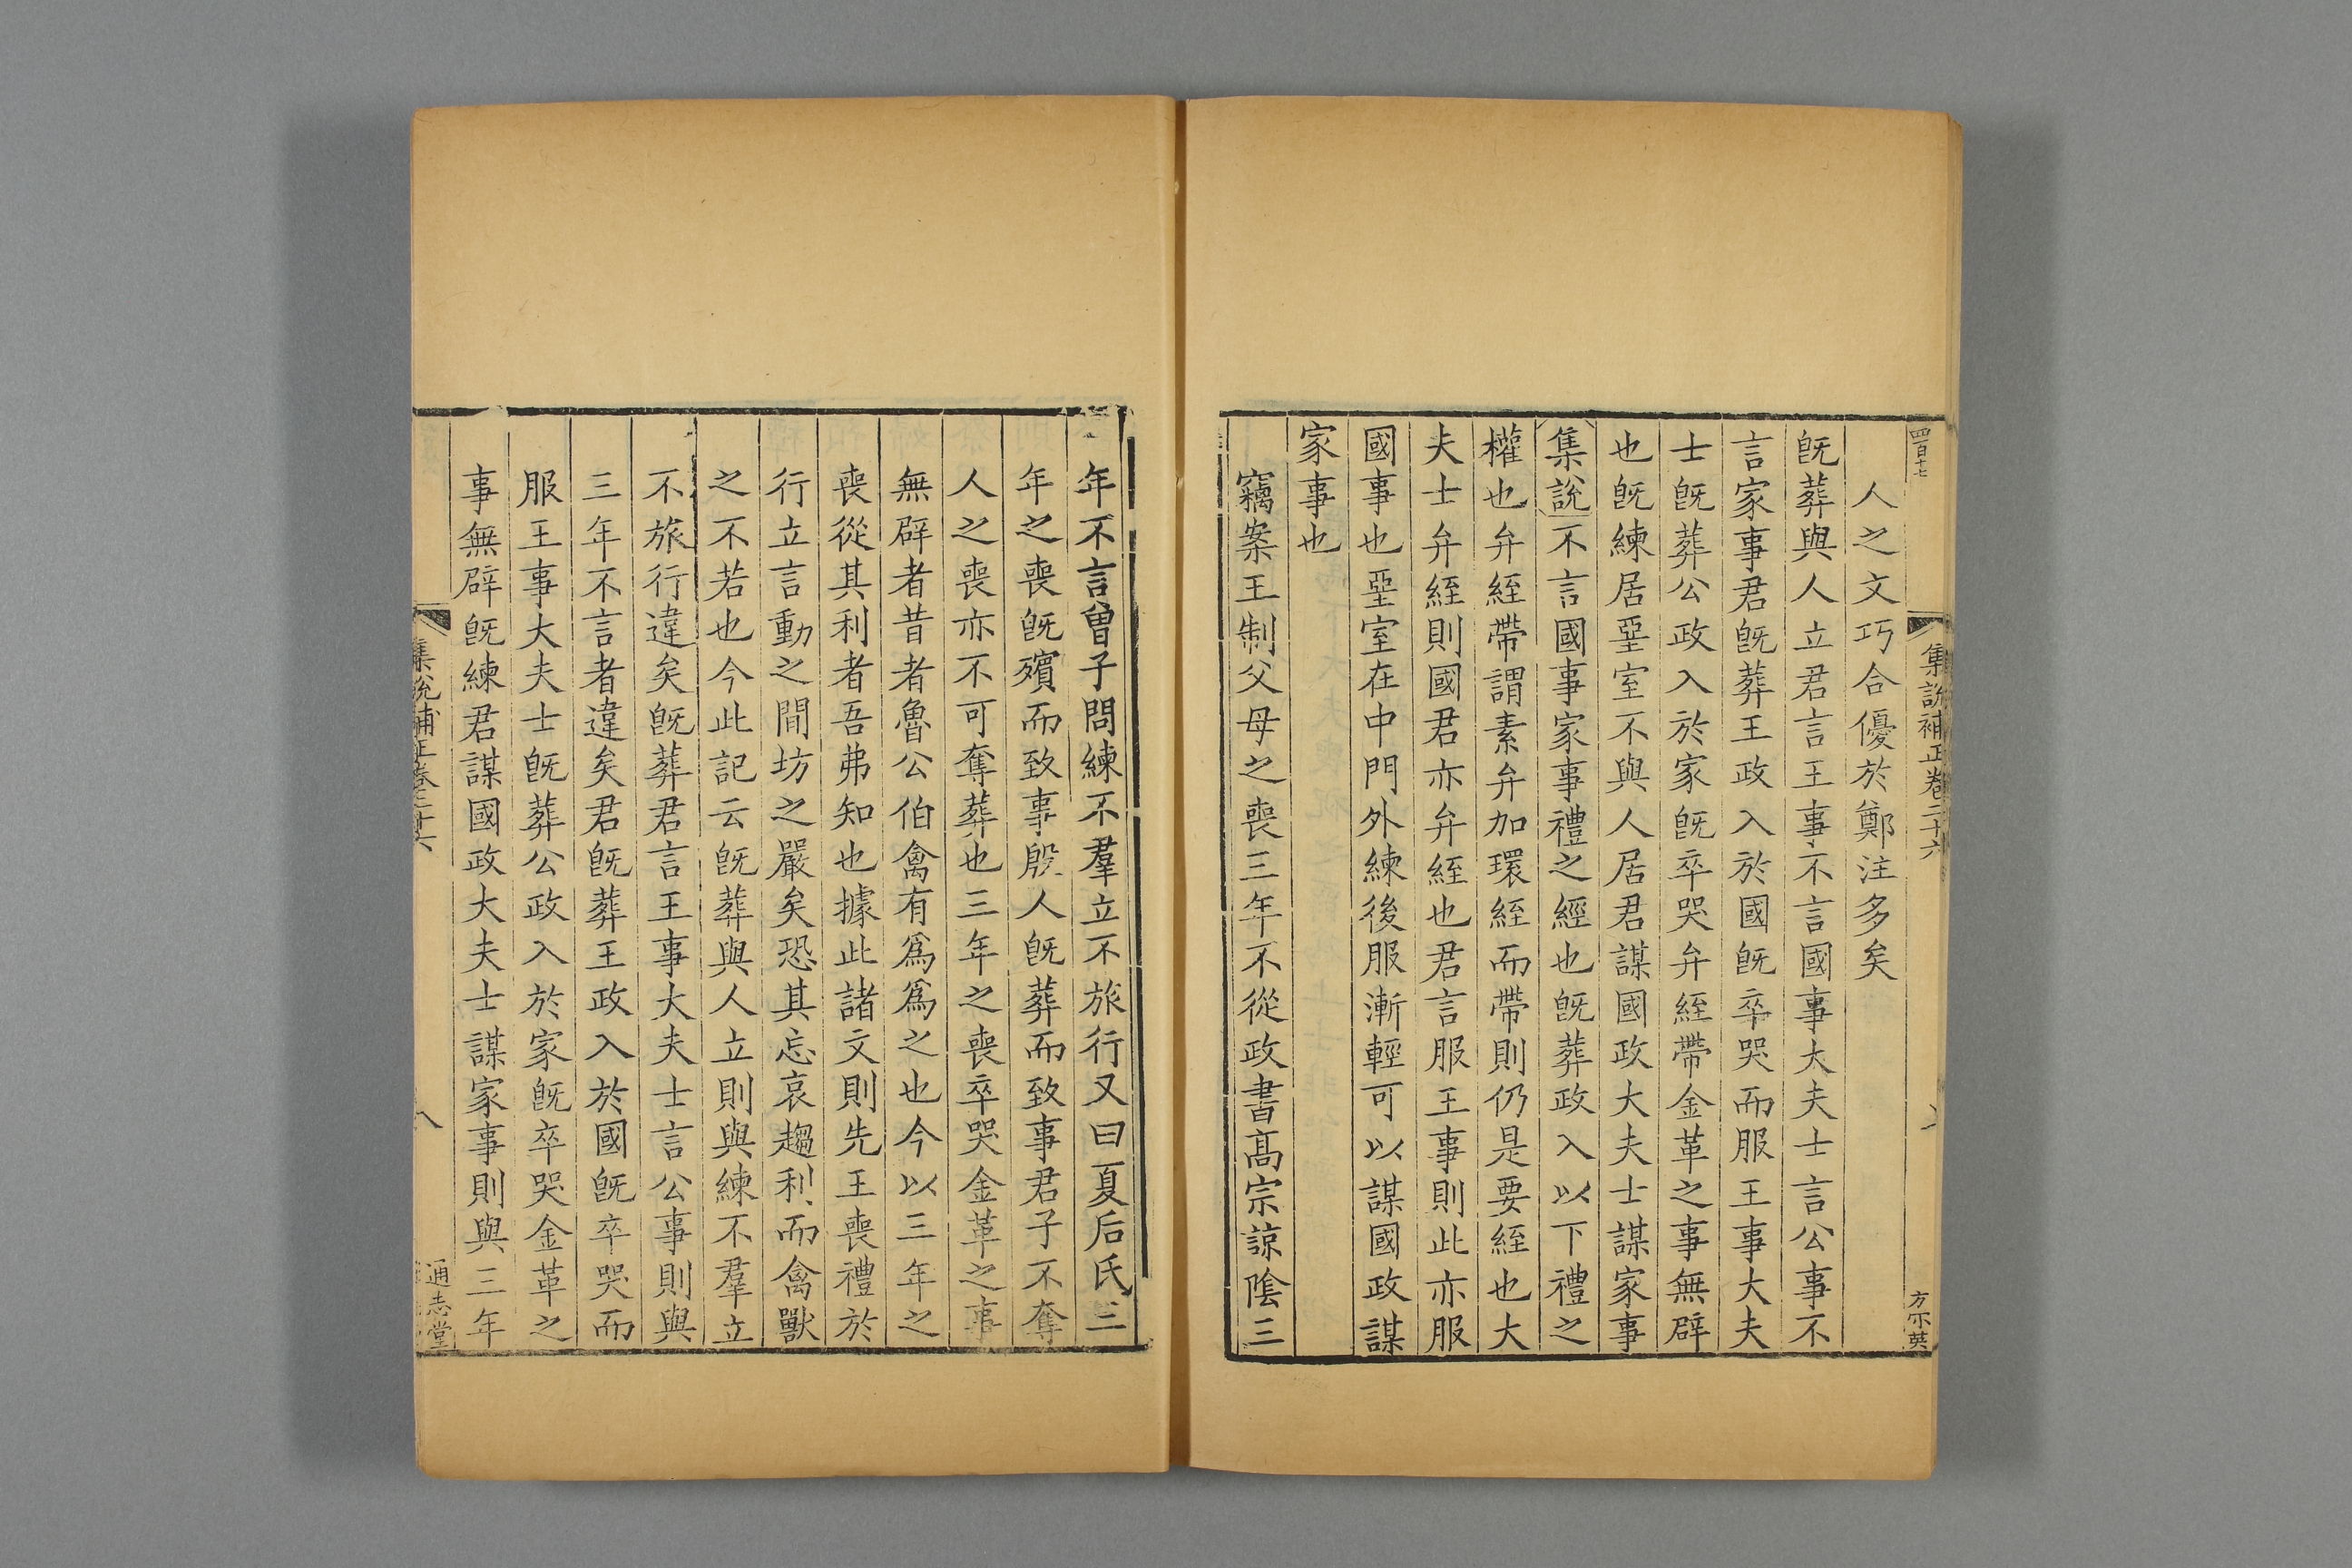 四百十七
集説補正卷二十六
方不英
人之文巧合優於鄭注多矣
旣葬與人立君言王事不言國事大夫士言公事不
言家事君旣葬王政入於國旣卒哭而服王事大夫
士旣葬公政入於家旣卒哭弁絰帶金革之事無辟
也旣練居堊室不與人居君謀國政大夫士謀家事
集説不言國事家事禮之經也旣葬政入以下禮之
權也弁絰帶謂素弁加環絰而帶則仍是要絰也大
夫士弁絰則國君亦弁絰也君言服王事則此亦服
國事也堊室在中門外練後服漸輕可以謀國政謀
家事也
竊案王制父母之喪三年不從政書髙宗諒陰三
年不言曾子問練不羣立不旅行又曰夏后氏三
年之喪旣殯而致事殷人旣葬而致事君子不奪
人之喪亦不可奪葬也三年之喪卒哭金革之事
無辟者昔者魯公伯禽有爲爲之也今以三年之
喪從其利者吾弗知也據此諸文則先王喪禮於
行立言動之間坊之嚴矣恐其忘哀趨利而禽獸
之不若也今此記云旣葬與人立則與練不羣立
不旅行違矣旣葬君言王事大夫士言公事則與
三年不言者違矣君旣葬王政入於國旣卒哭而
服王事大夫士旣葬公政入於家旣卒哭金革之
事無辟旣練君謀國政大夫士謀家事則與三年
集說補正卷二十六
八
通志堂